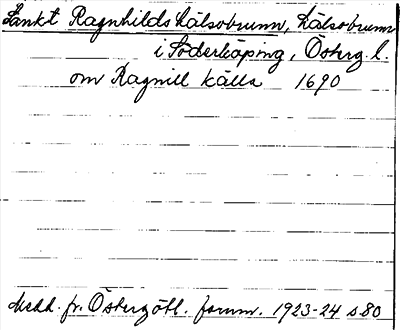 Sankt Ragnhilds hälsobrunn, hälsobrunn
i Söderköping, Österg. l.
om Ragnill källa 1690
Medd. fr. Östergötl. fornm. 1923-24 s 80